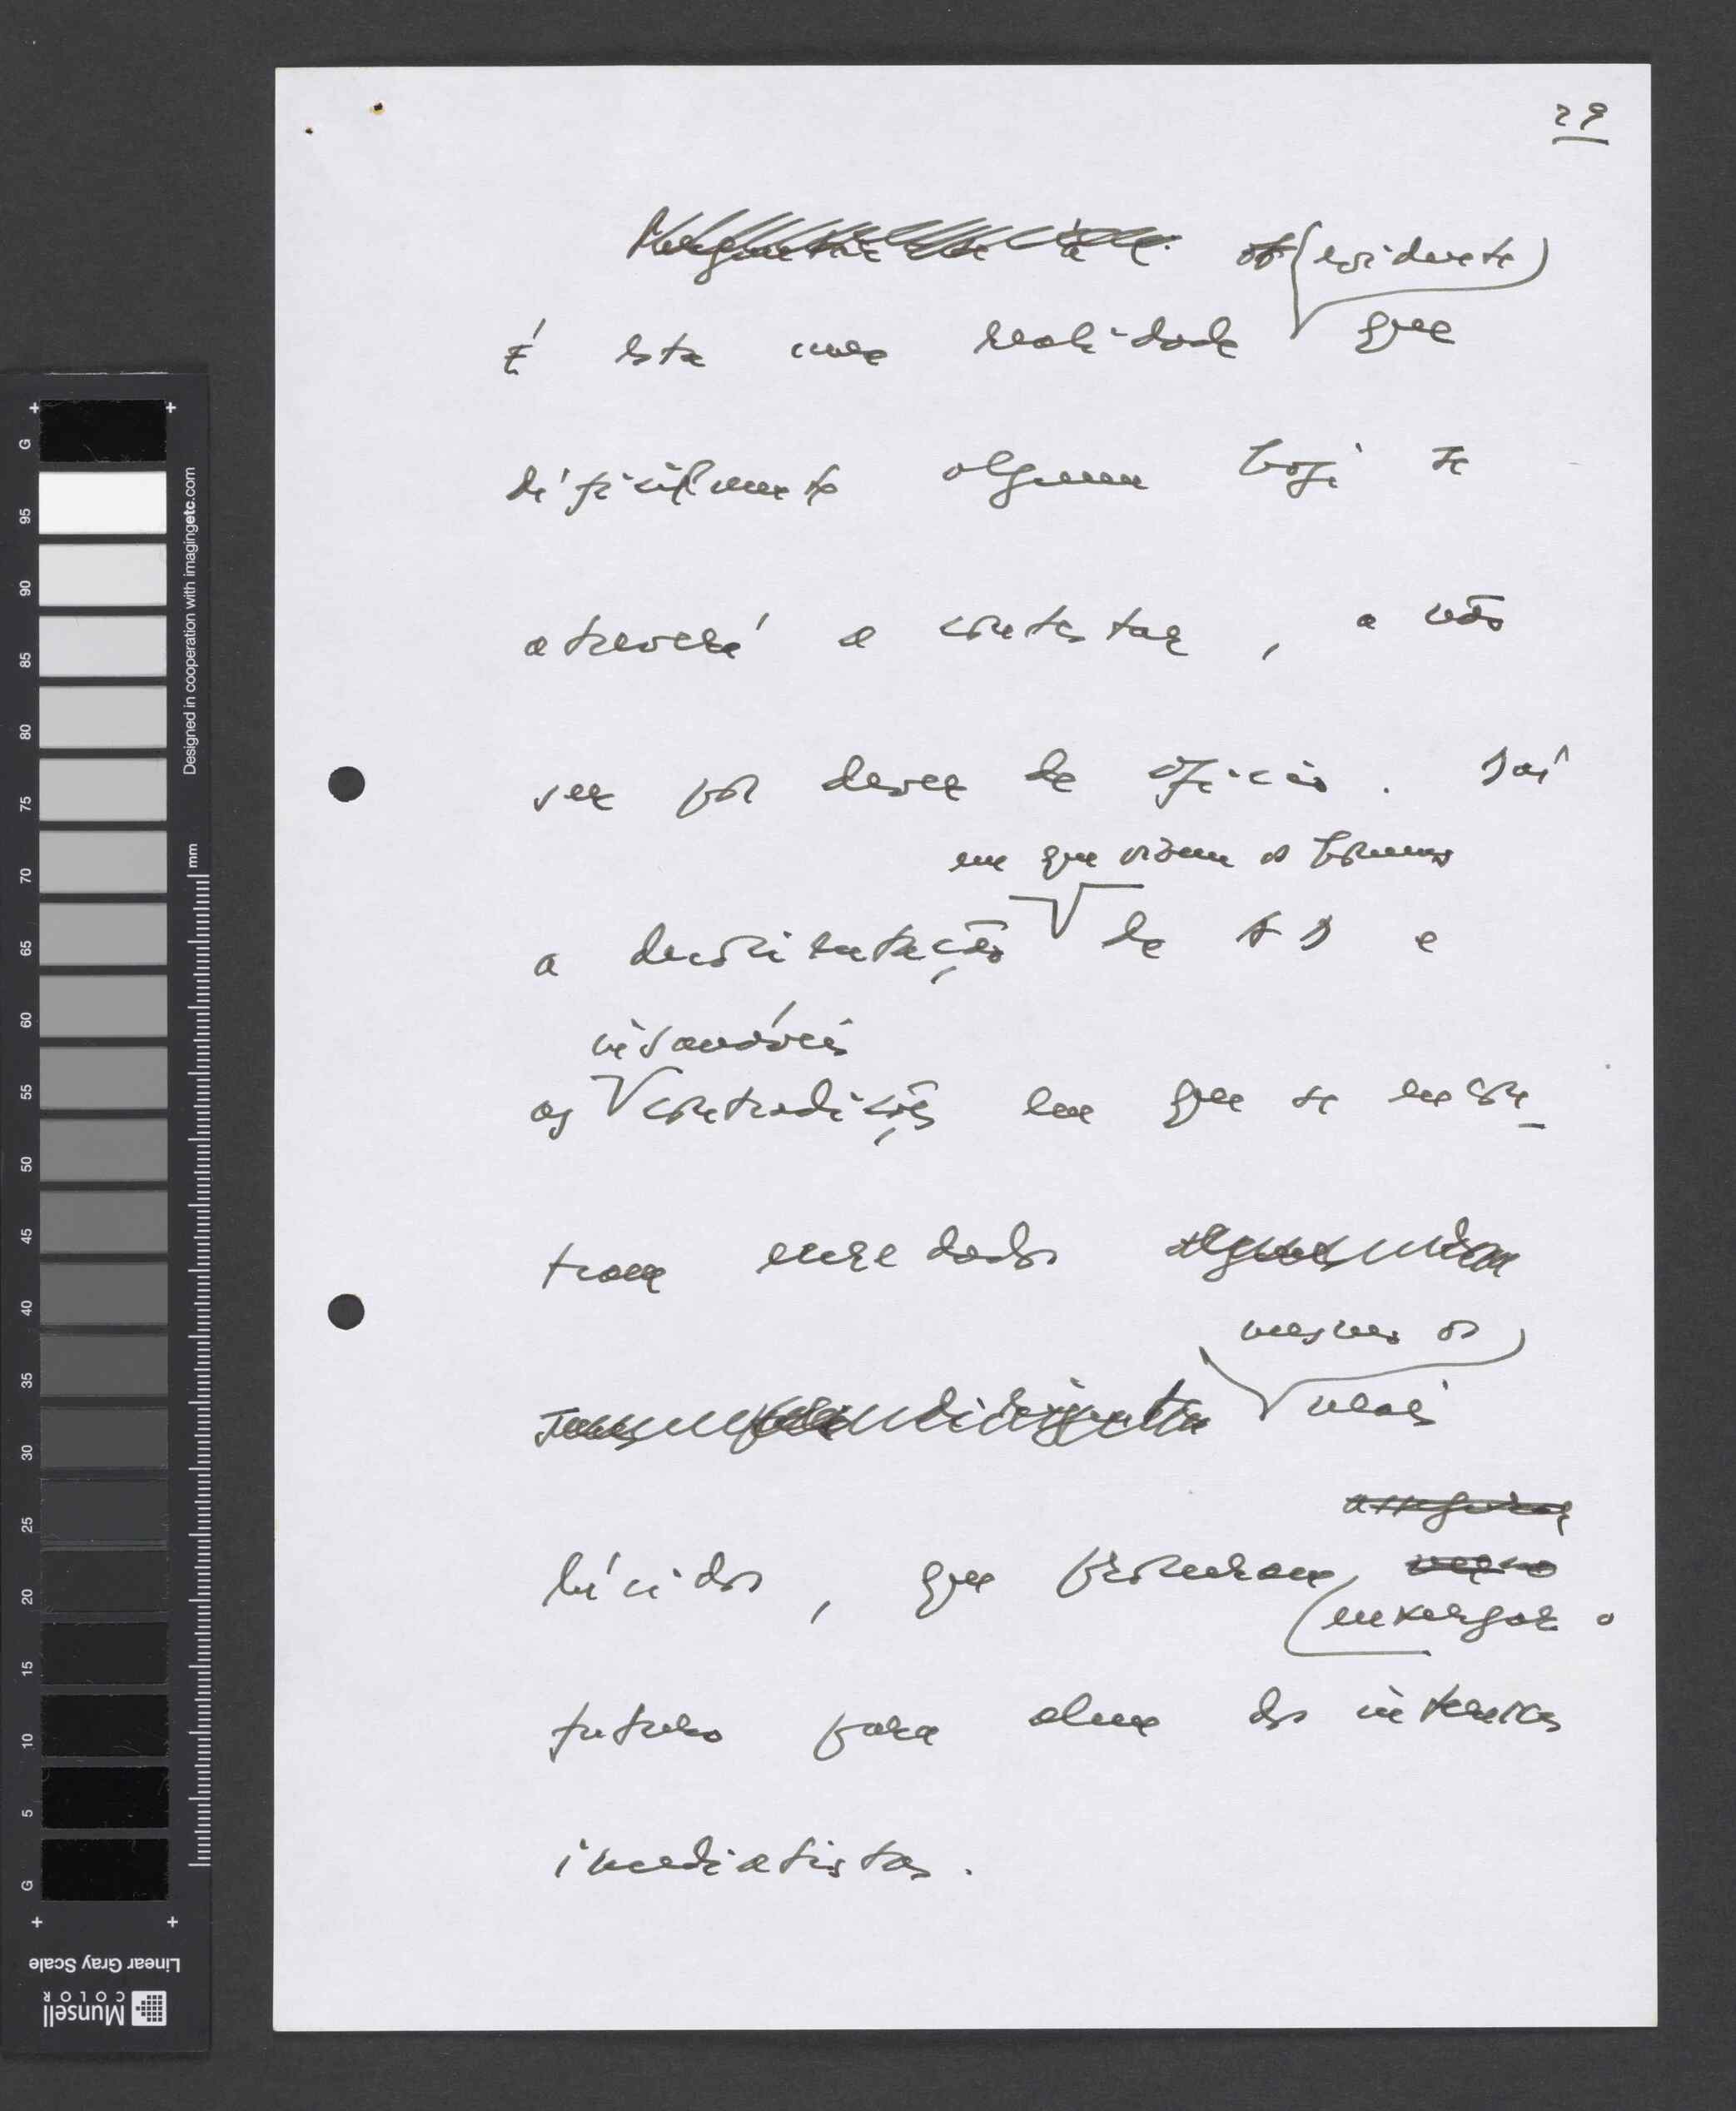 29
(evidente)
É esta uma realidade que
dificilmente alguem hoje se
atreverá a contestar, a não
ser por dever de oficio. Daí
em que vivem os homens
a desorientação de SD e
insanáveis
as contradições em que se encon-
tram enredados
mesmo os
mais
assegurar
lúcidos, que procuram
enxergar o
futuro para alem dos interesses
imediatistas.
G
95
90
85
80
75
70
65
60
55
50
45
40
35
30
25
20
15
10
5
G
mm
Designed in cooperation with imagingetc.com
Linear Gray Scale
Munsell
COLOR